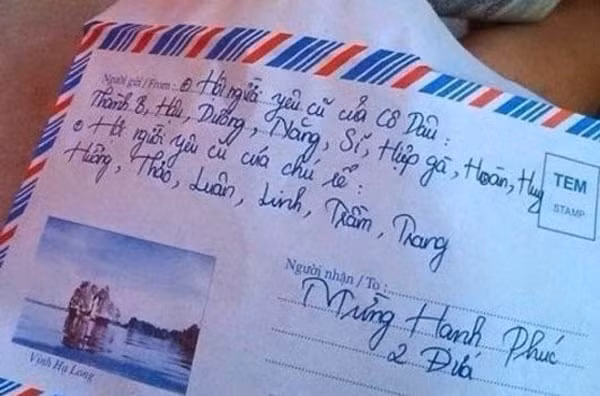 Người gửi / From : Hội người yêu cũ của Cô Dâu :
Thành B, Hữu, Dưỡng, Năng, Sĩ, Hiệp gà, Hoàn, Huy
Hội người yêu cũ của chú rể :
Hiền, Thảo, Luân, Linh, Trầm, Trang
TEM
STAMP
Người nhận / To :
Mừng Hạnh Phúc
2 Đứa
Vịnh Hạ Long